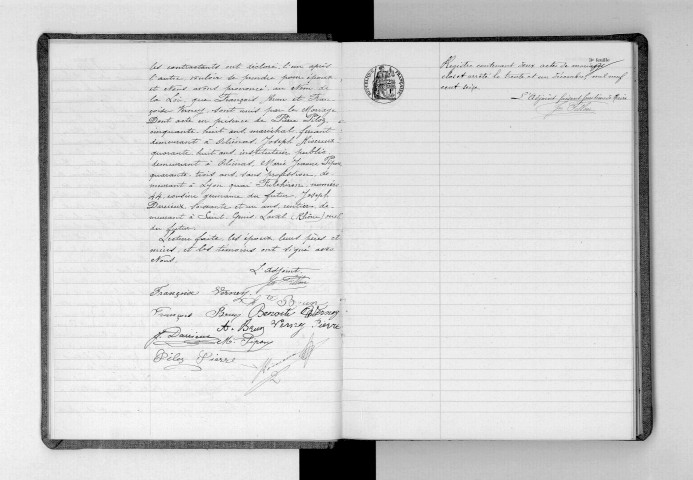 les contractants ont déclaré l'un après
l'autre vouloir se prendre pour époux
et nous avons prononcé au nom de
la Loi, que François Brun et Fran-
çoise Verney sont unis par le Mariage
Dont acte en présence de Pierre Péloz
cinquante huit ans, maréchal ferrant
demeurant à Joseph
quarante huit ans, instituteur public
demeurant à Marie Jeanne
quarante trois ans, sans profession de-
meurant à Lyon quai Fulchiron, numéro
44, cousine germaine du futur Joseph
soixante et un ans, rentier de-
meurant à Saint-Genis Laval (Rhône)
du futur
Lecture faite, les époux leurs pères et
mères, et les témoins ont signé avec
Nous.
L'adjoint
Françoise Verney
Brun
François Brun Benoite Verney
A. Brun Verney Pierre
M.
Péloz Pierre
3e feuille
Registre contenant deux actes de mariages
clos et arrêté le trente et un décembre mil neuf
cent
L'Adjoint